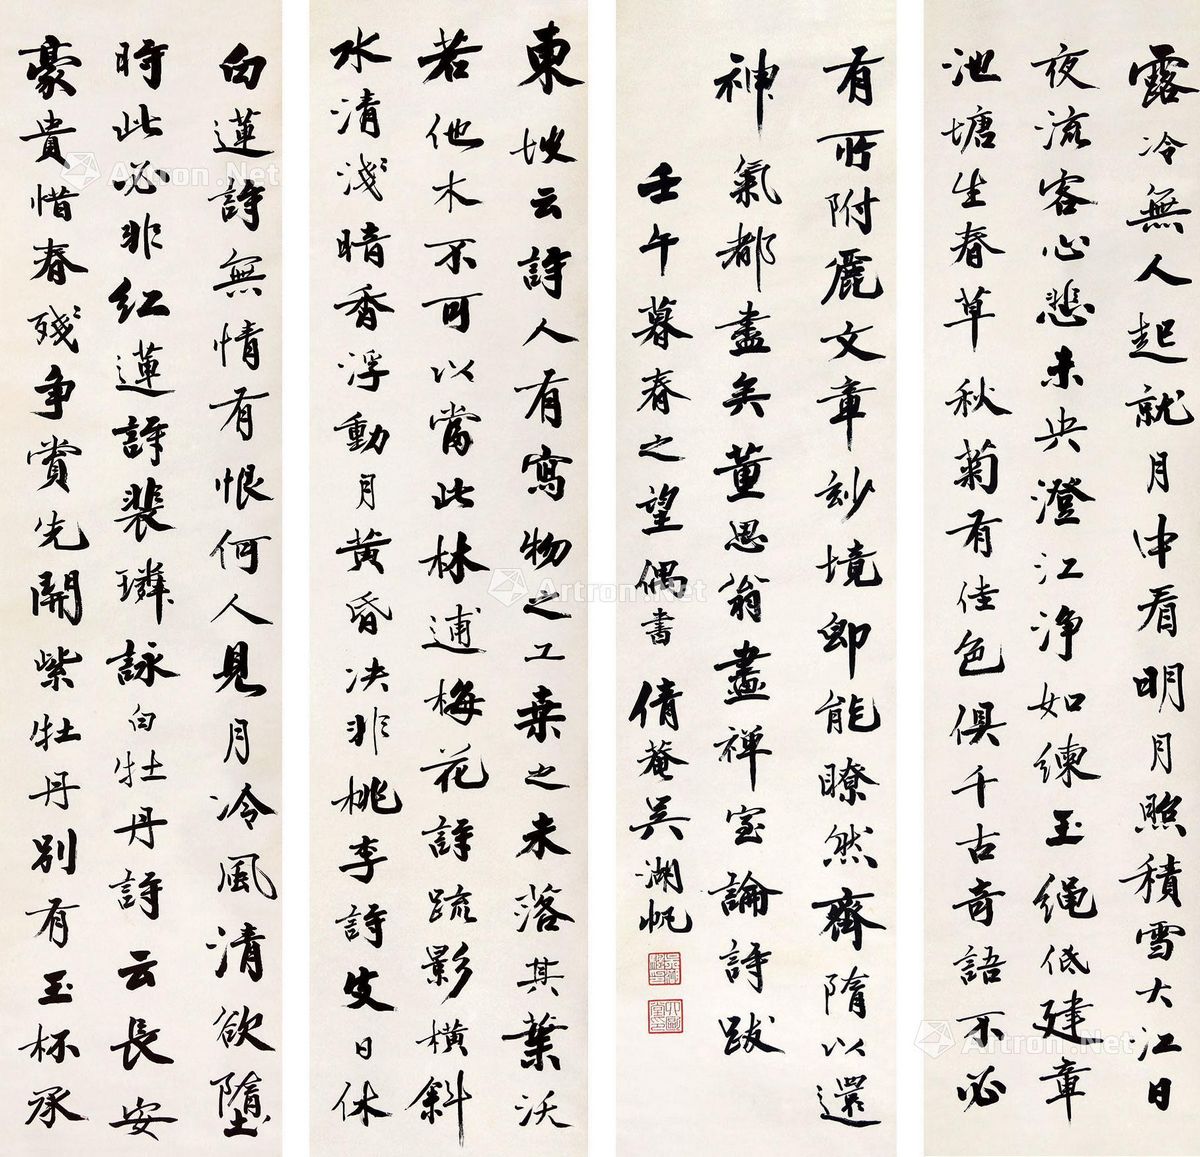 東坡云詩人有寫物之工桑之未落其葉沃
若他木不可以當此林逋梅花詩疏影橫斜
水清淺暗香浮動月黃昏决非桃李詩皮日休
白蓮詩無情有恨何人見月冷風清欲墮
時此必非紅蓮詩裴璘詠白牡丹詩云長安
豪貴惜春殘争賞先開紫牡丹別有玉杯承
露冷無人起就月中看明月照積雪大江日
夜流客心悲未央澄江淨如練玉繩低建章
池塘生春草秋菊有佳色俱千古奇語不必
有所附麗文章妙境即能瞭然齊隋以還
神氣都盡矣董思翁畫禪室論詩跋
壬午暮春之望偶書倩菴吳湖帆
Artron.Net
Artron.Net
Artron.Net